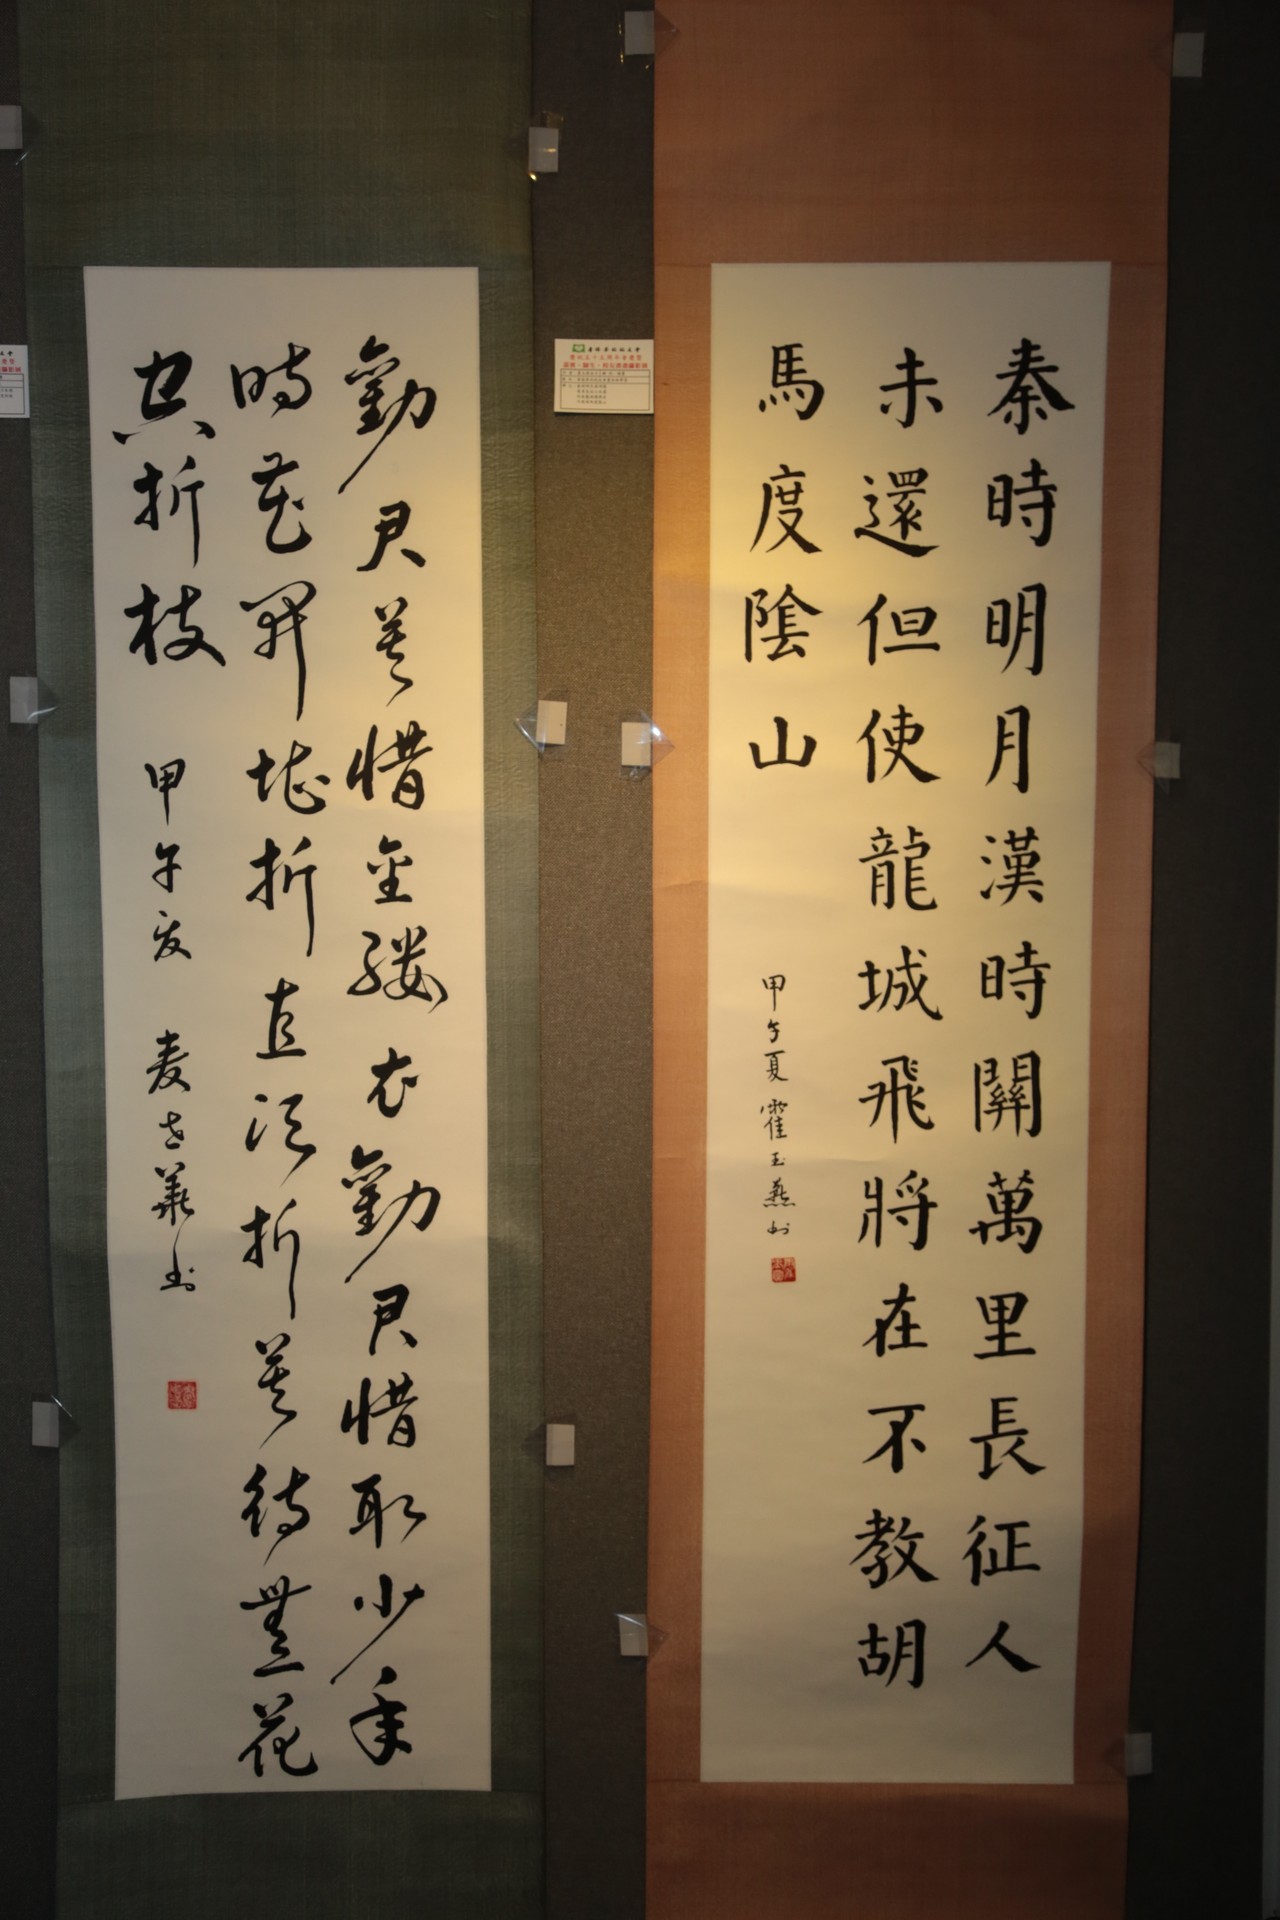 秦時明月漢時關萬里長征人
未還但使龍城飛將在不教胡
馬度陰山
甲午夏霍玉燕書
慶祝五十五周年會慶暨
勸君莫惜金縷衣勸君惜取少年
時花開堪折直須折莫待無花
空折枝
甲午夏 麦華書